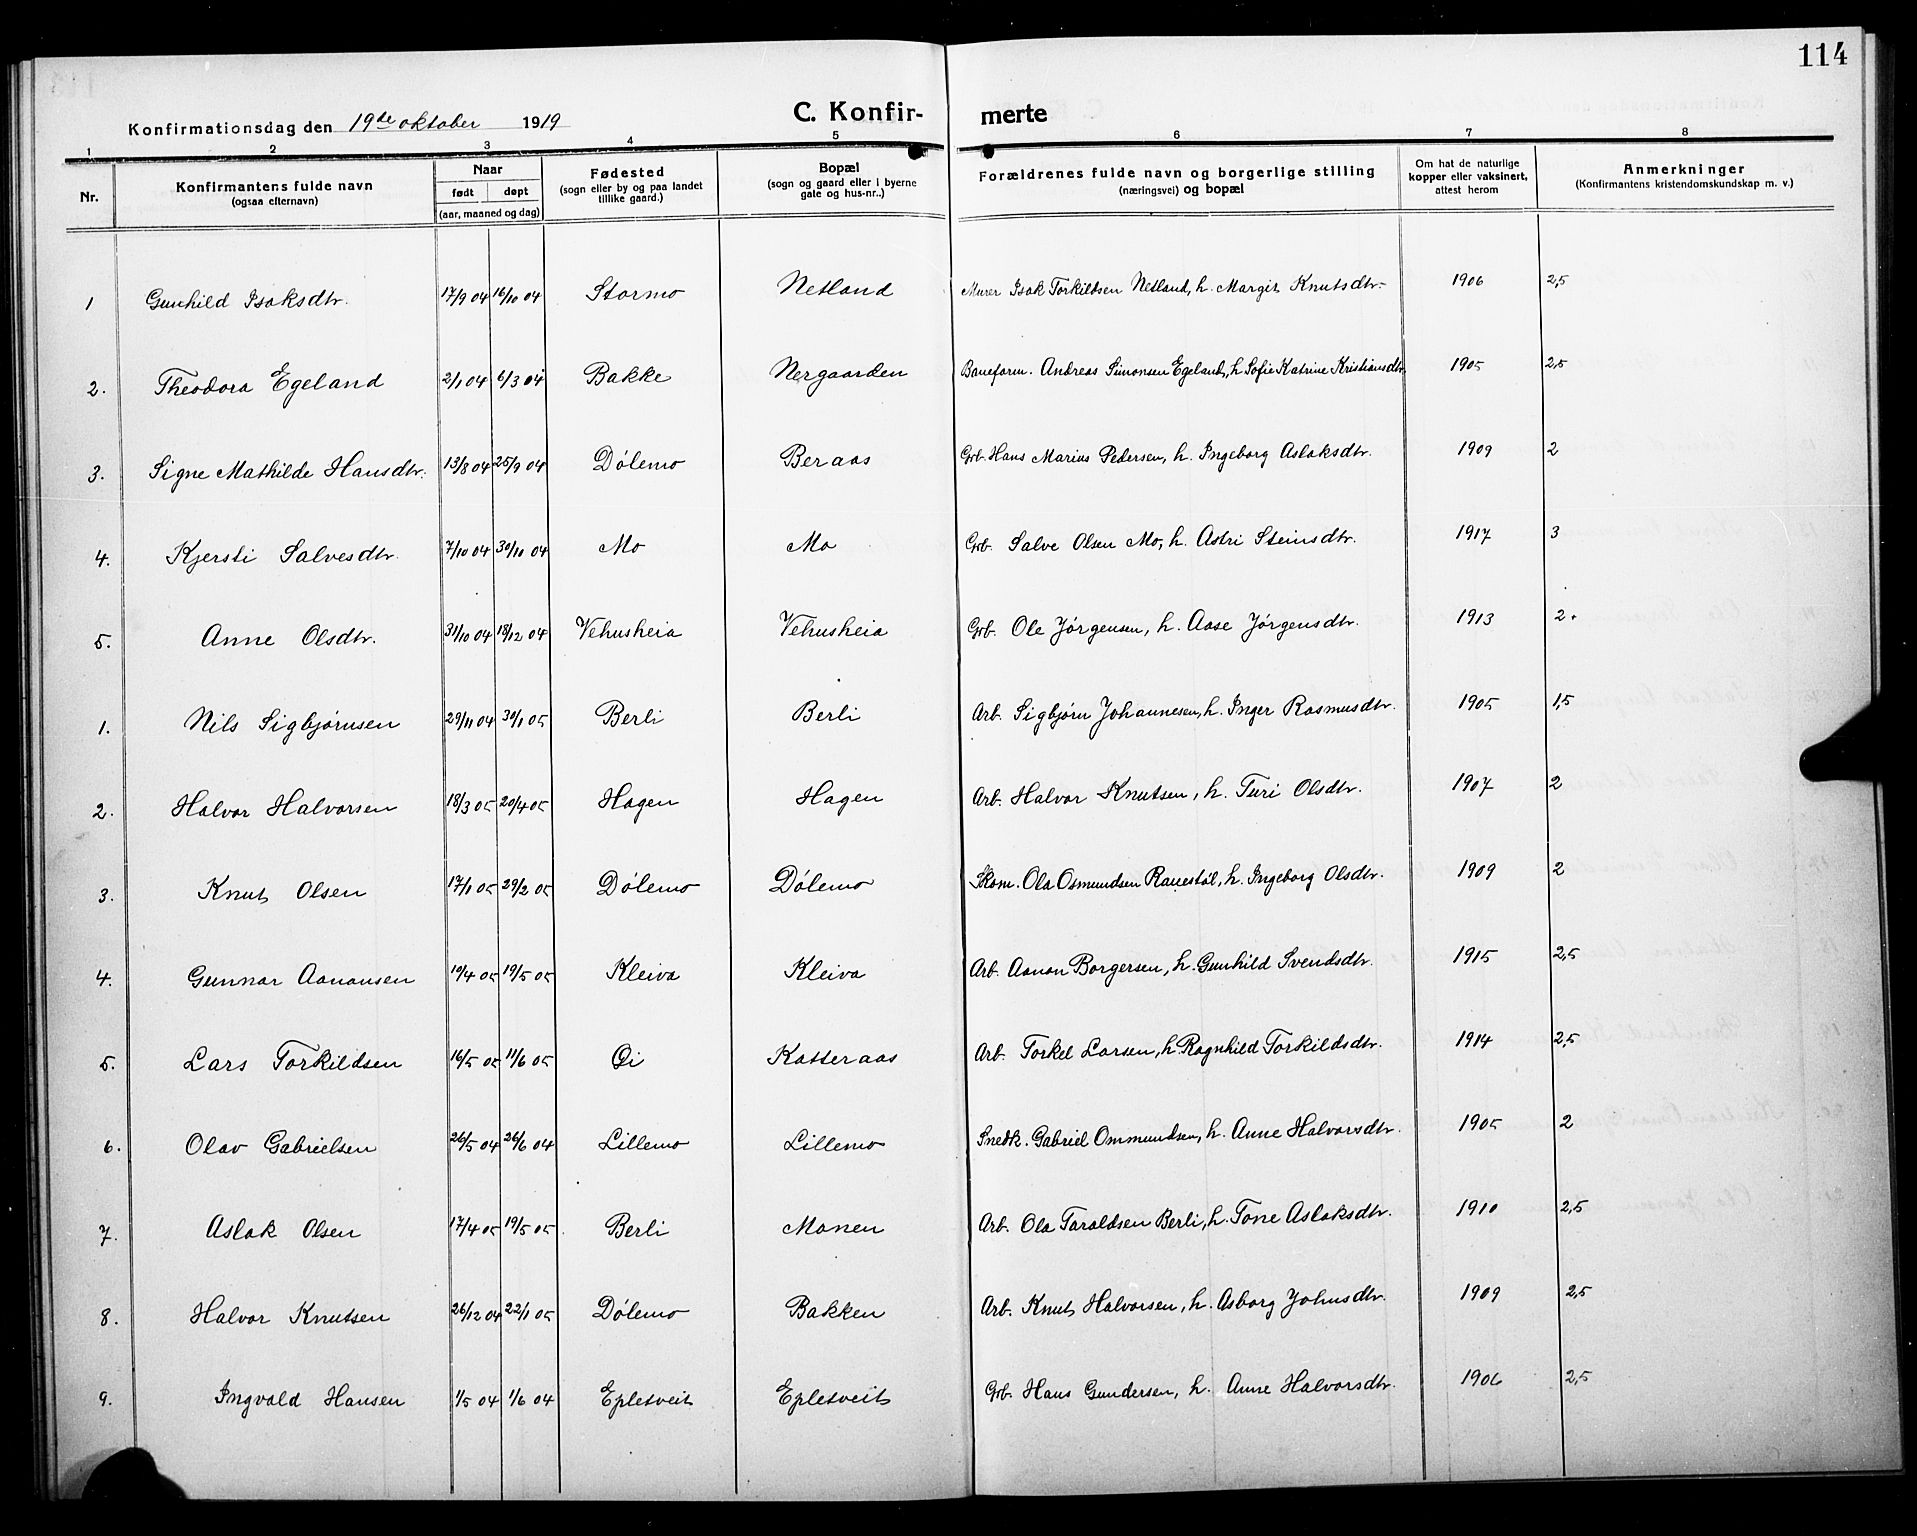 114
Konfirmationsdag den 19de oktober 1919 C. Konfir- merte
1 2 3 4 5 6 7 8
Nr. Konfirmantens fulde navn (ogsaa efternavn) Naar født døpt (aar, maaned og dag) Fødested (sogn eller by og paa landet tillike gaard.) Bopæl (sogn og gaard eller i byerne gate og hus-nr..) Forældrenes fulde navn og borgerlige stilling (næringsvei) og bopæl Om hat de naturlige kopper eller vaksinert, attest herom Anmerkninger (Konfirmantens kristendomskundskap m. v.)
1 Gunhild Isaksdtr. 17/9 04 16/10 04 Stormo Netland Murer Isak Torkildsen Netland, h. Margit Knutsdtr. 1906 2,5
2. Theodora Egeland 2/1 04 6/3 04 Bakke Nergaarden Baneform. Andreas Simonsen Egeland, h. Sofie Katrine Kristiansdtr. 1905 2,5
3. Signe Mathilde Hansdtr. 13/8 04 25/9 04 Dølemo Beraas Grb. Hans Marius Pedersen, h. Ingeborg Aslaksdtr. 1909 2
4. Kjersti Salvesdtr. 7/10 04 30/10 04 Mo Mo Grb. Salve Olsen Mo, h. Astri Steinsdtr. 1917 3
5. Anne Olsdtr. 31/10 04 18/12 04 Vehusheia Vehusheia Grb. Ole Jørgensen, h. Aase Jørgensdtr. 1913 2.
1. Nils Sigbjørnsen 29/11 04 30/1 05 Berli Berli Arb. Sigbjørn Johannesen, h. Inger Rasmusdtr. 1905 1,5
2. Halvor Halvorsen 18/3 05 20/4 05 Hagen Hagen Arb. Halvor Knutsen, h. Turi Olsdtr. 1907 2
3. Knut Olsen 17/1 05 29/2 05 Dølemo Dølemo Skom. Ola Osmundsen Rauestøl, h. Ingeborg Olsdtr. 1909 2
4. Gunnar Aanonsen 10/4 05 19/5 05 Kleiva Kleiva Arb. Aanon Borgersen, h. Gunhild Svendsdtr. 1915 2,5
5. Lars Torkildsen 16/5 05 11/6 05 Øi Katteraas Arb. Torkel Larsen, h. Ragnhild Torkildsdtr. 1914 2,5
6. Olav Gabrielsen 26/5 04 26/6 04 Lillemo Lillemo Snedk. Gabriel Ommundsen, h. Anne Halvorsdtr. 1905 2
7. Aslak Olsen 17/4 05 19/5 05 Berli Monen Arb. Ola Taraldsen Berli, h. Tone Aslaksdtr. 1910 2,5
8. Halvor Knutsen 26/12 04 22/1 05 Dølemo Bakken Arb. Knut Halvorsen, h. Asborg Johnsdtr. 1909 2,5
9. Ingvald Hansen 1/5 04 1/6 04 Epletveit Epletveit Grb. Hans Gundersen, h. Anne Halvorsdtr. 1906 2,5